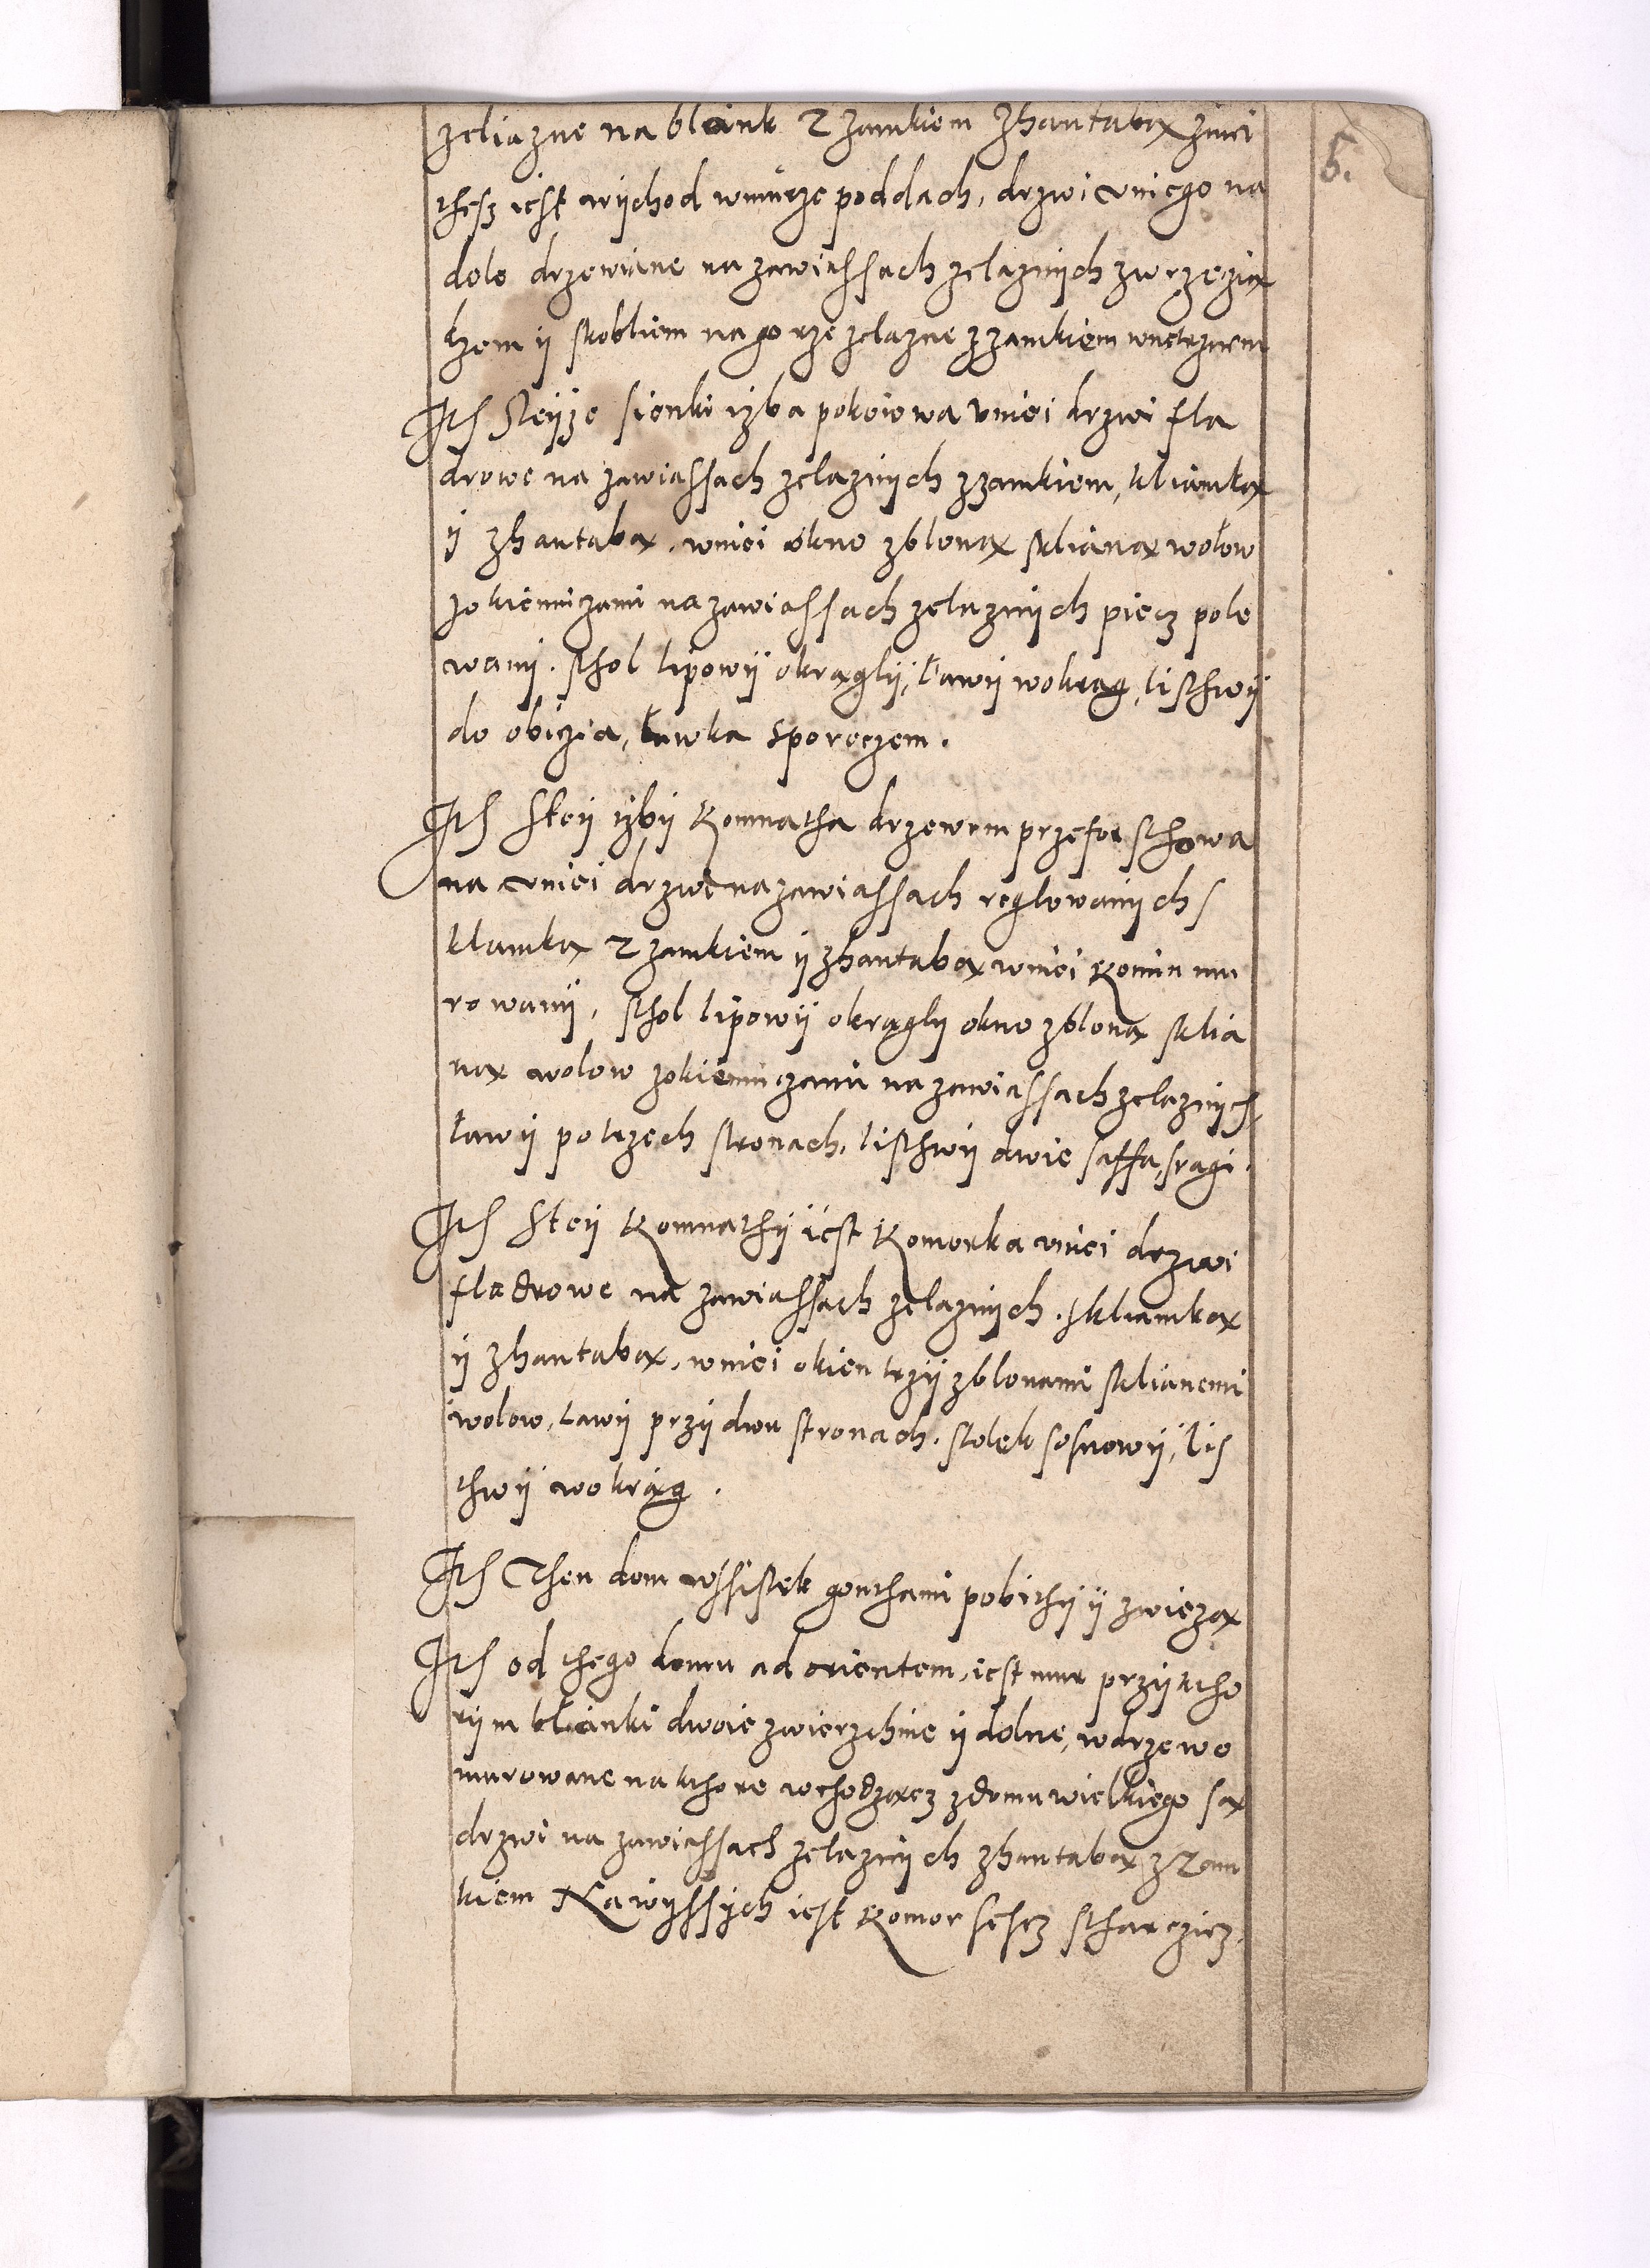 5.
zeliazne na blank z zamkiem zhantabą zniei
thesz iest wychod wmurze poddach, drzwi vniego na
dole drzewiane na zawiassach zelaznych zwrzeczią
kzem y skobliem na gorze zelazne zzamkiem wnetrznem
Its Steyze sienki izba pokoiowa vniei drzwi fla
drowe na zawiassach zelaznych zzamkiem, kliamką
y zhantabą, wniei okno zbloną sklianą wolow
zokienniczami na zawiassach zelaznych piecz pole
wany. sthol lipowy okrągly, ławy wokrąg, listhwy
do obiczia, ławka sporeczem.
Its Stey izby Komnatha drzewem przeforsthowa
na vniei drzwi na zawiassach reglowanych s
klamką z zamkiem y zhantabą wniei Komin mu
rowany, sthol lipowy okrągly okno zbloną sklia
ną wolow zokienniczami na zawiassach zelaznych,
ławy po trzech stronach, listhwy dwie saffa, sragi.
Its Stey Komnathy iest Komorka vniei drzwi
fladrowe na zawiassach zelaznych. skliamką
y zhantabą, wniei okien trzy zblonami sklianemi
wolow, ławy przy dwu stronach, stolek sosnowy, lis
thwy wokrąg.
Its Then dom wssistek gonthami pobithy y zwiezą
Its od thego domu ad orientem, iest mur przy ktho
rym blanki dwoie zwierzchnie y dolne, wdrzewo
murowane na kthore wchodząncz zdomu wielkiego są
drzwi na zawiassach zelaznych zhantabą z zam
kiem Nawyssych iest Komor sescz stharczicz.